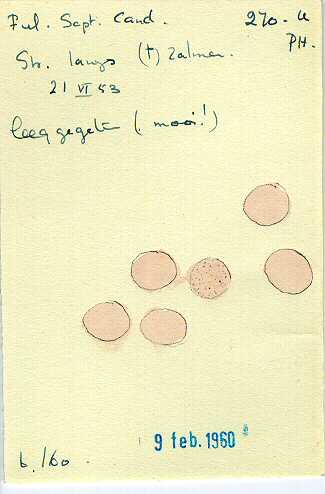 Ful. Sept. Cand. 270-u
PH.
Str. langs (†) Zalmen.
21 VI 53
leeggegeten (! mooi!)
9 feb. 1960
6./60.